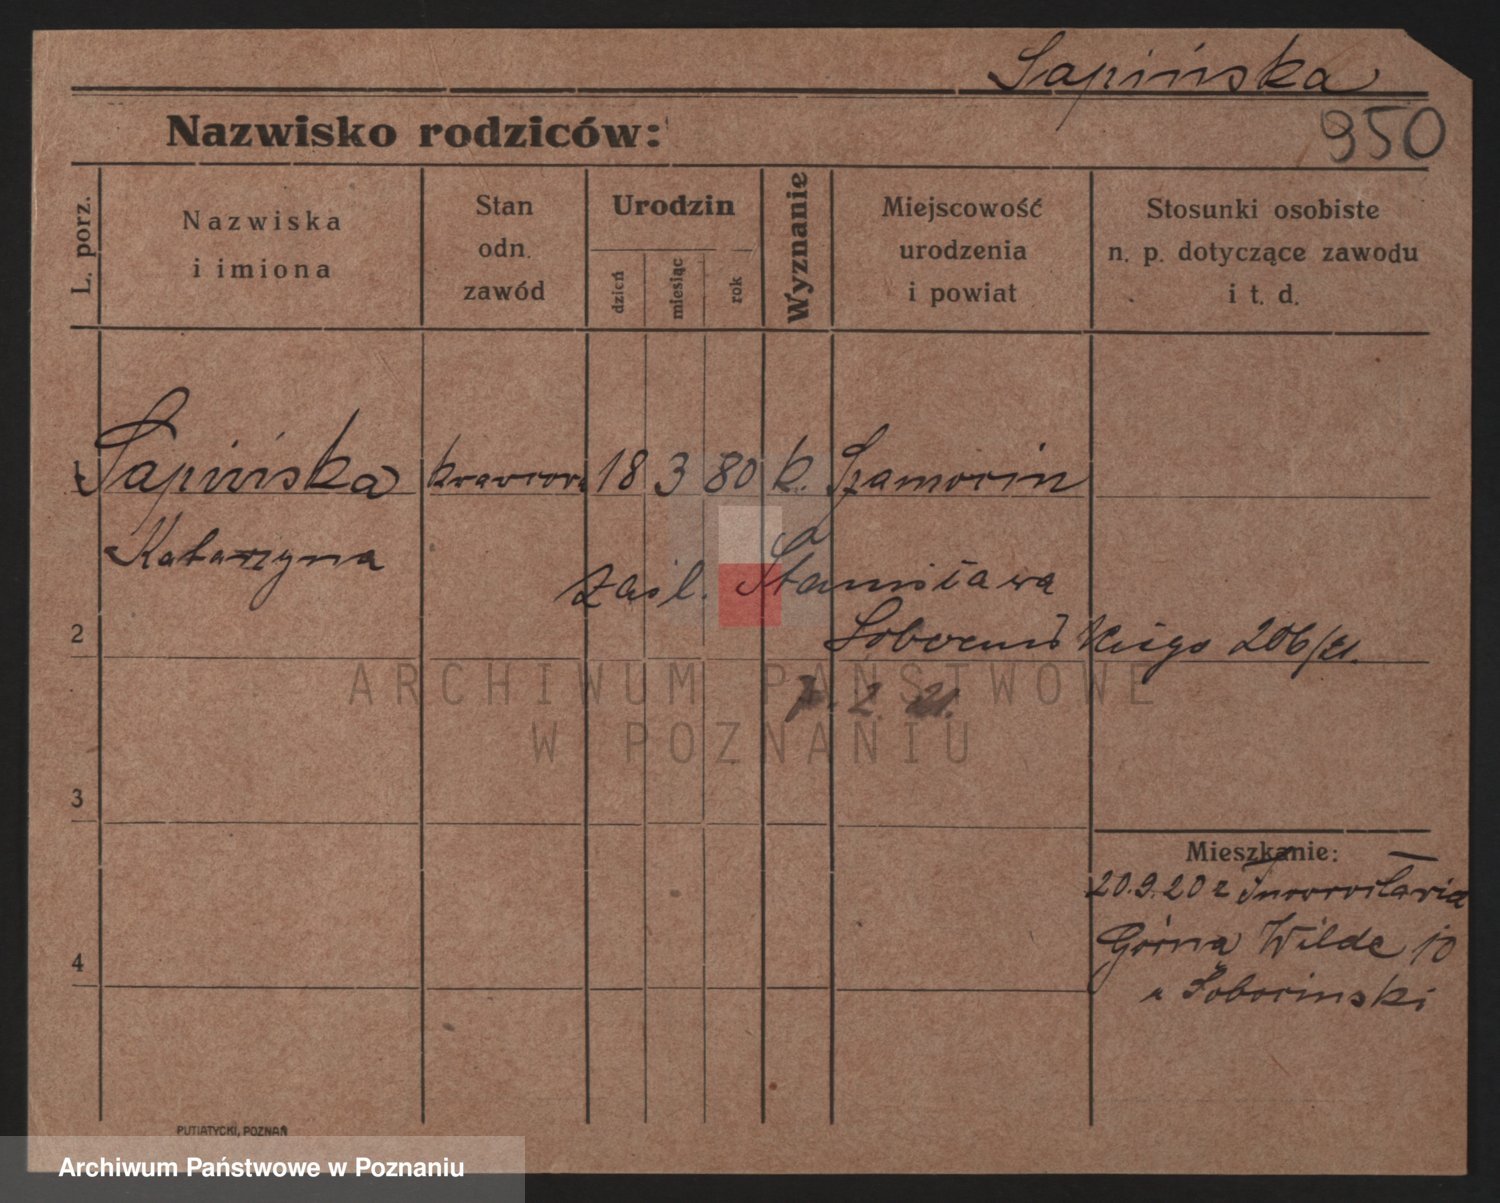 Sapińska
950
Nazwisko rodziców:
L. porz.
Nazwiska
i imiona
Stan
odn.
zawód
Urodzin
dzień
miesiąc
rok
Wyznanie
Miejscowość
urodzenia
i powiat
Stosunki osobiste
n. p. dotyczące zawodu
i t. d.
1 Sapińska 18 3 80 k. Szamocin
Katarzyna
zaśl. Stanisława
206/21.
2
7. 2. 21.
ARCHIWUM PAŃSTWOWE
W POZNANIU
3
Mieszkanie:
20.9.20 z Inowrocławia
Górna Wilde 10
4
u Soborinski
PUTIATYCKI, POZNAŃ
Archiwum Państwowe w Poznaniu